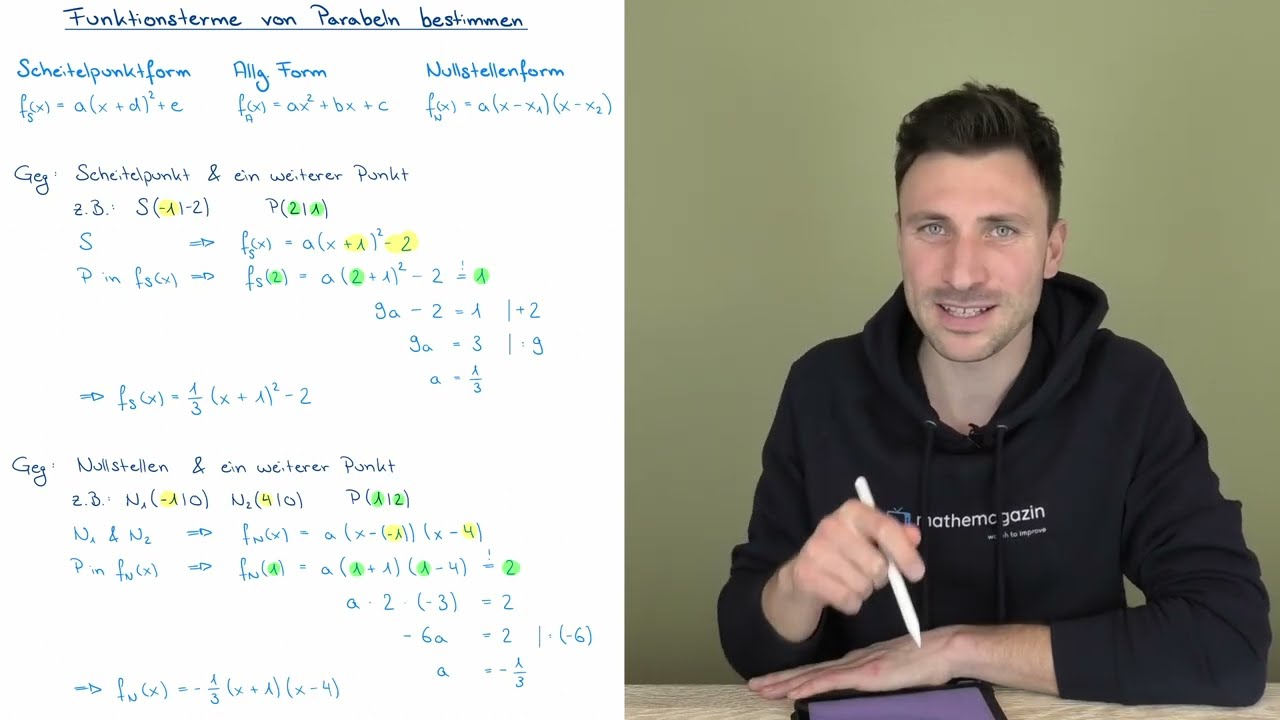 Funktionsterme von Parabeln bestimmen
Scheitelpunktform Allg. Form Nullstellenform
f_S(x) = a(x + d)² + e f_A(x) = ax² + bx + c f_N(x) = a(x - x₁)(x - x₂)
Geg: Scheitelpunkt & ein weiterer Punkt
z.B.: S(-1|-2) P(2|1)
S ⇒ f_S(x) = a(x + 1)² - 2
P in f_S(x) ⇒ f_S(2) = a(2 + 1)² - 2 =! 1
9a - 2 = 1 |+2
9a = 3 |:9
a = 1/3
⇒ f_S(x) = 1/3 (x + 1)² - 2
Geg: Nullstellen & ein weiterer Punkt
z.B.: N₁(-1|0) N₂(4|0) P(1|2)
N₁ & N₂ ⇒ f_N(x) = a (x-(-1)) (x - 4)
P in f_N(x) ⇒ f_N(1) = a (1 + 1) (1 - 4) =! 2
a · 2 · (-3) = 2
- 6a = 2 |:(-6)
a = - 1/3
⇒ f_N(x) = - 1/3 (x + 1) (x - 4)
mathemagazin
to improve